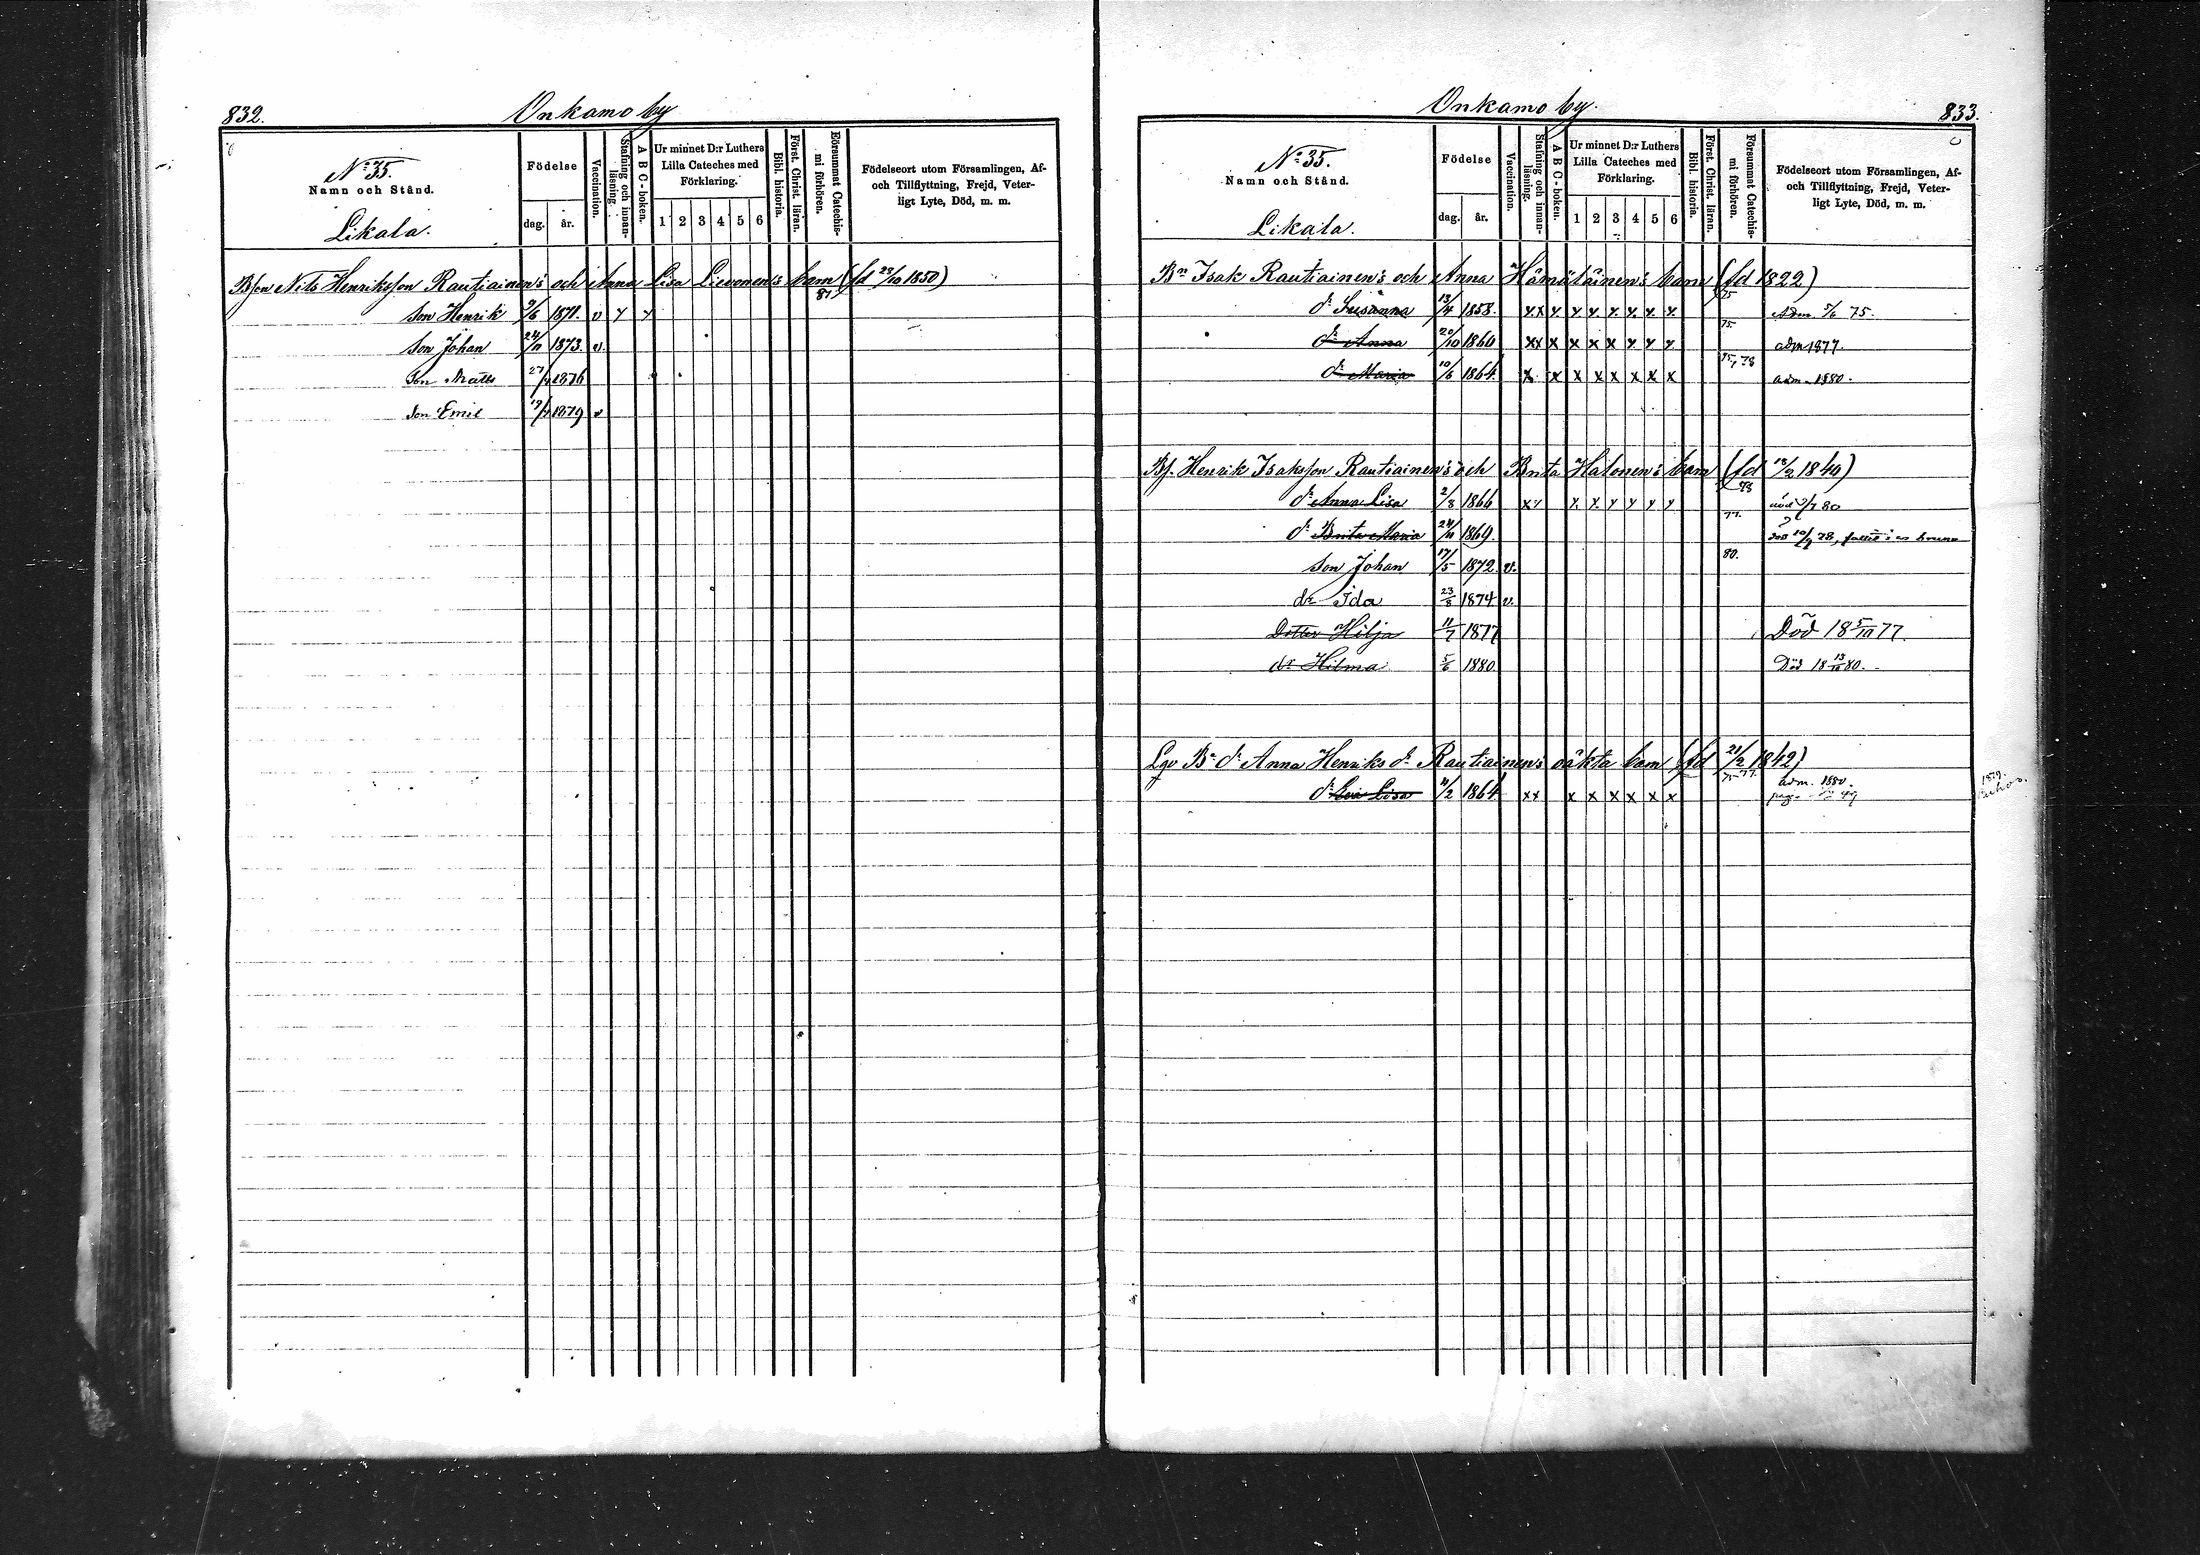 832.
Onkamo by
No 35.
Namn och Stånd.
Likala.
Födelse
dag.
år.
Vaccination.
Stafning och innan-
läsning.
A B C-boken.
Ur minnet D:r Luthers
Lilla Cateches med
Förklaring.
1 2 3 4 5 6
Bibl. historia.
Först. Christ. läran.
Försummat Catechis-
mi förhören.
Födelseort utom Församlingen, Af-
och Tillflyttning, Frejd, Veter-
ligt Lyte, Död, m. m.
Bson Nils Henriksson Rautiainen's och Anna Lisa Lievonen's barn (fd 28/10 1850)
son Henrik 9/6 1871. v y y 81.
son Johan 24/11 1873. v.
Son Matts 27/ 1876
Son Emil 19/ 1879 v
Onkamo by.
833.
No 35.
Namn och Stånd.
Likala.
Födelse
dag.
år.
Vaccination.
Stafning och innan-
läsning.
A B C-boken.
Ur minnet D:r Luthers
Lilla Cateches med
Förklaring.
1 2 3 4 5 6
Bibl. historia.
Först. Christ. läran.
Försummat Catechis-
mi förhören.
Födelseort utom Församlingen, Af-
och Tillflyttning, Frejd, Veter-
ligt Lyte, Död, m. m.
Bn Isak Rautiainen's och Anna Hämäläinen's barn (fd 1822)
dr Susanna 13/4 1858. y x y. y. y. y. y. y. y. 75 Adm. 5/6 75.
dr Anna 20/10 1860 x x x x x x y y y 75. adm 1877.
dr Maria 10/6 1864. x x x x x x x x 75, 78 adm. 1880.
Bs. Henrik Isaksson Rautiainen's och Brita Halonen's barn (fd 18/2 1840)
dr Anna Lisa 2/8 1866 x y y. y. y y y y 78 död /7 80
dr Brita Maria 24/11 1869. 77. död 10/9 78, fallit i en brunn
son Johan 17/5 1872. v. 80.
dr Ida 23/8 1874. v.
Dotter Hilja 11/7 1877 Död 18 5/10 77.
dr Hilma 5/6 1880 Död 18 13/10 80.
Lgo Bn dr Anna Henriks dr Rautiainen's oäkta barn (fd 21/2 1842)
dr Eva Lisa 11/2 1864 x x x x x x x x 75 77. adm. 1880.
pag.
1879.